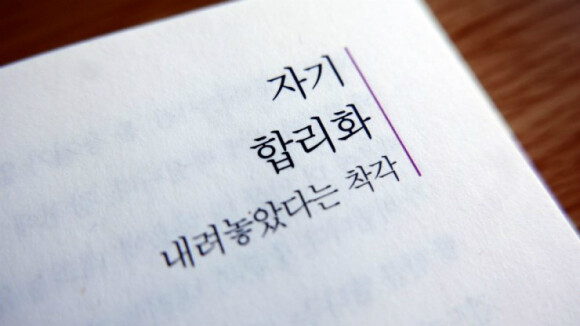 자기
합리화
내려놓았다는 착각